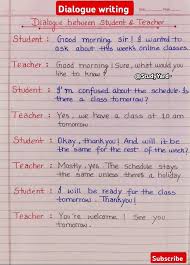 Dialogue writing
Dialogue between Student & Teacher
Student : Good morning Sir! I wanted to
ask about this week online classes.
Teacher : Good morning! Sure, what would you
like to know?
@StudyYard
Student : I'm confused about the schedule. Is
there a class tomorrow?
Teacher : Yes, we have a class at 10 am
tomorrow.
Student : Okay, thankyou! And will it be
the same for the rest of the week?
Teacher : Mostly, yes. The schedule stays
the same unless there's a holiday.
Student : I will be ready for the class
tomorrow. Thankyou!
Teacher : You're welcome! See you
tomorrow.
Subscribe